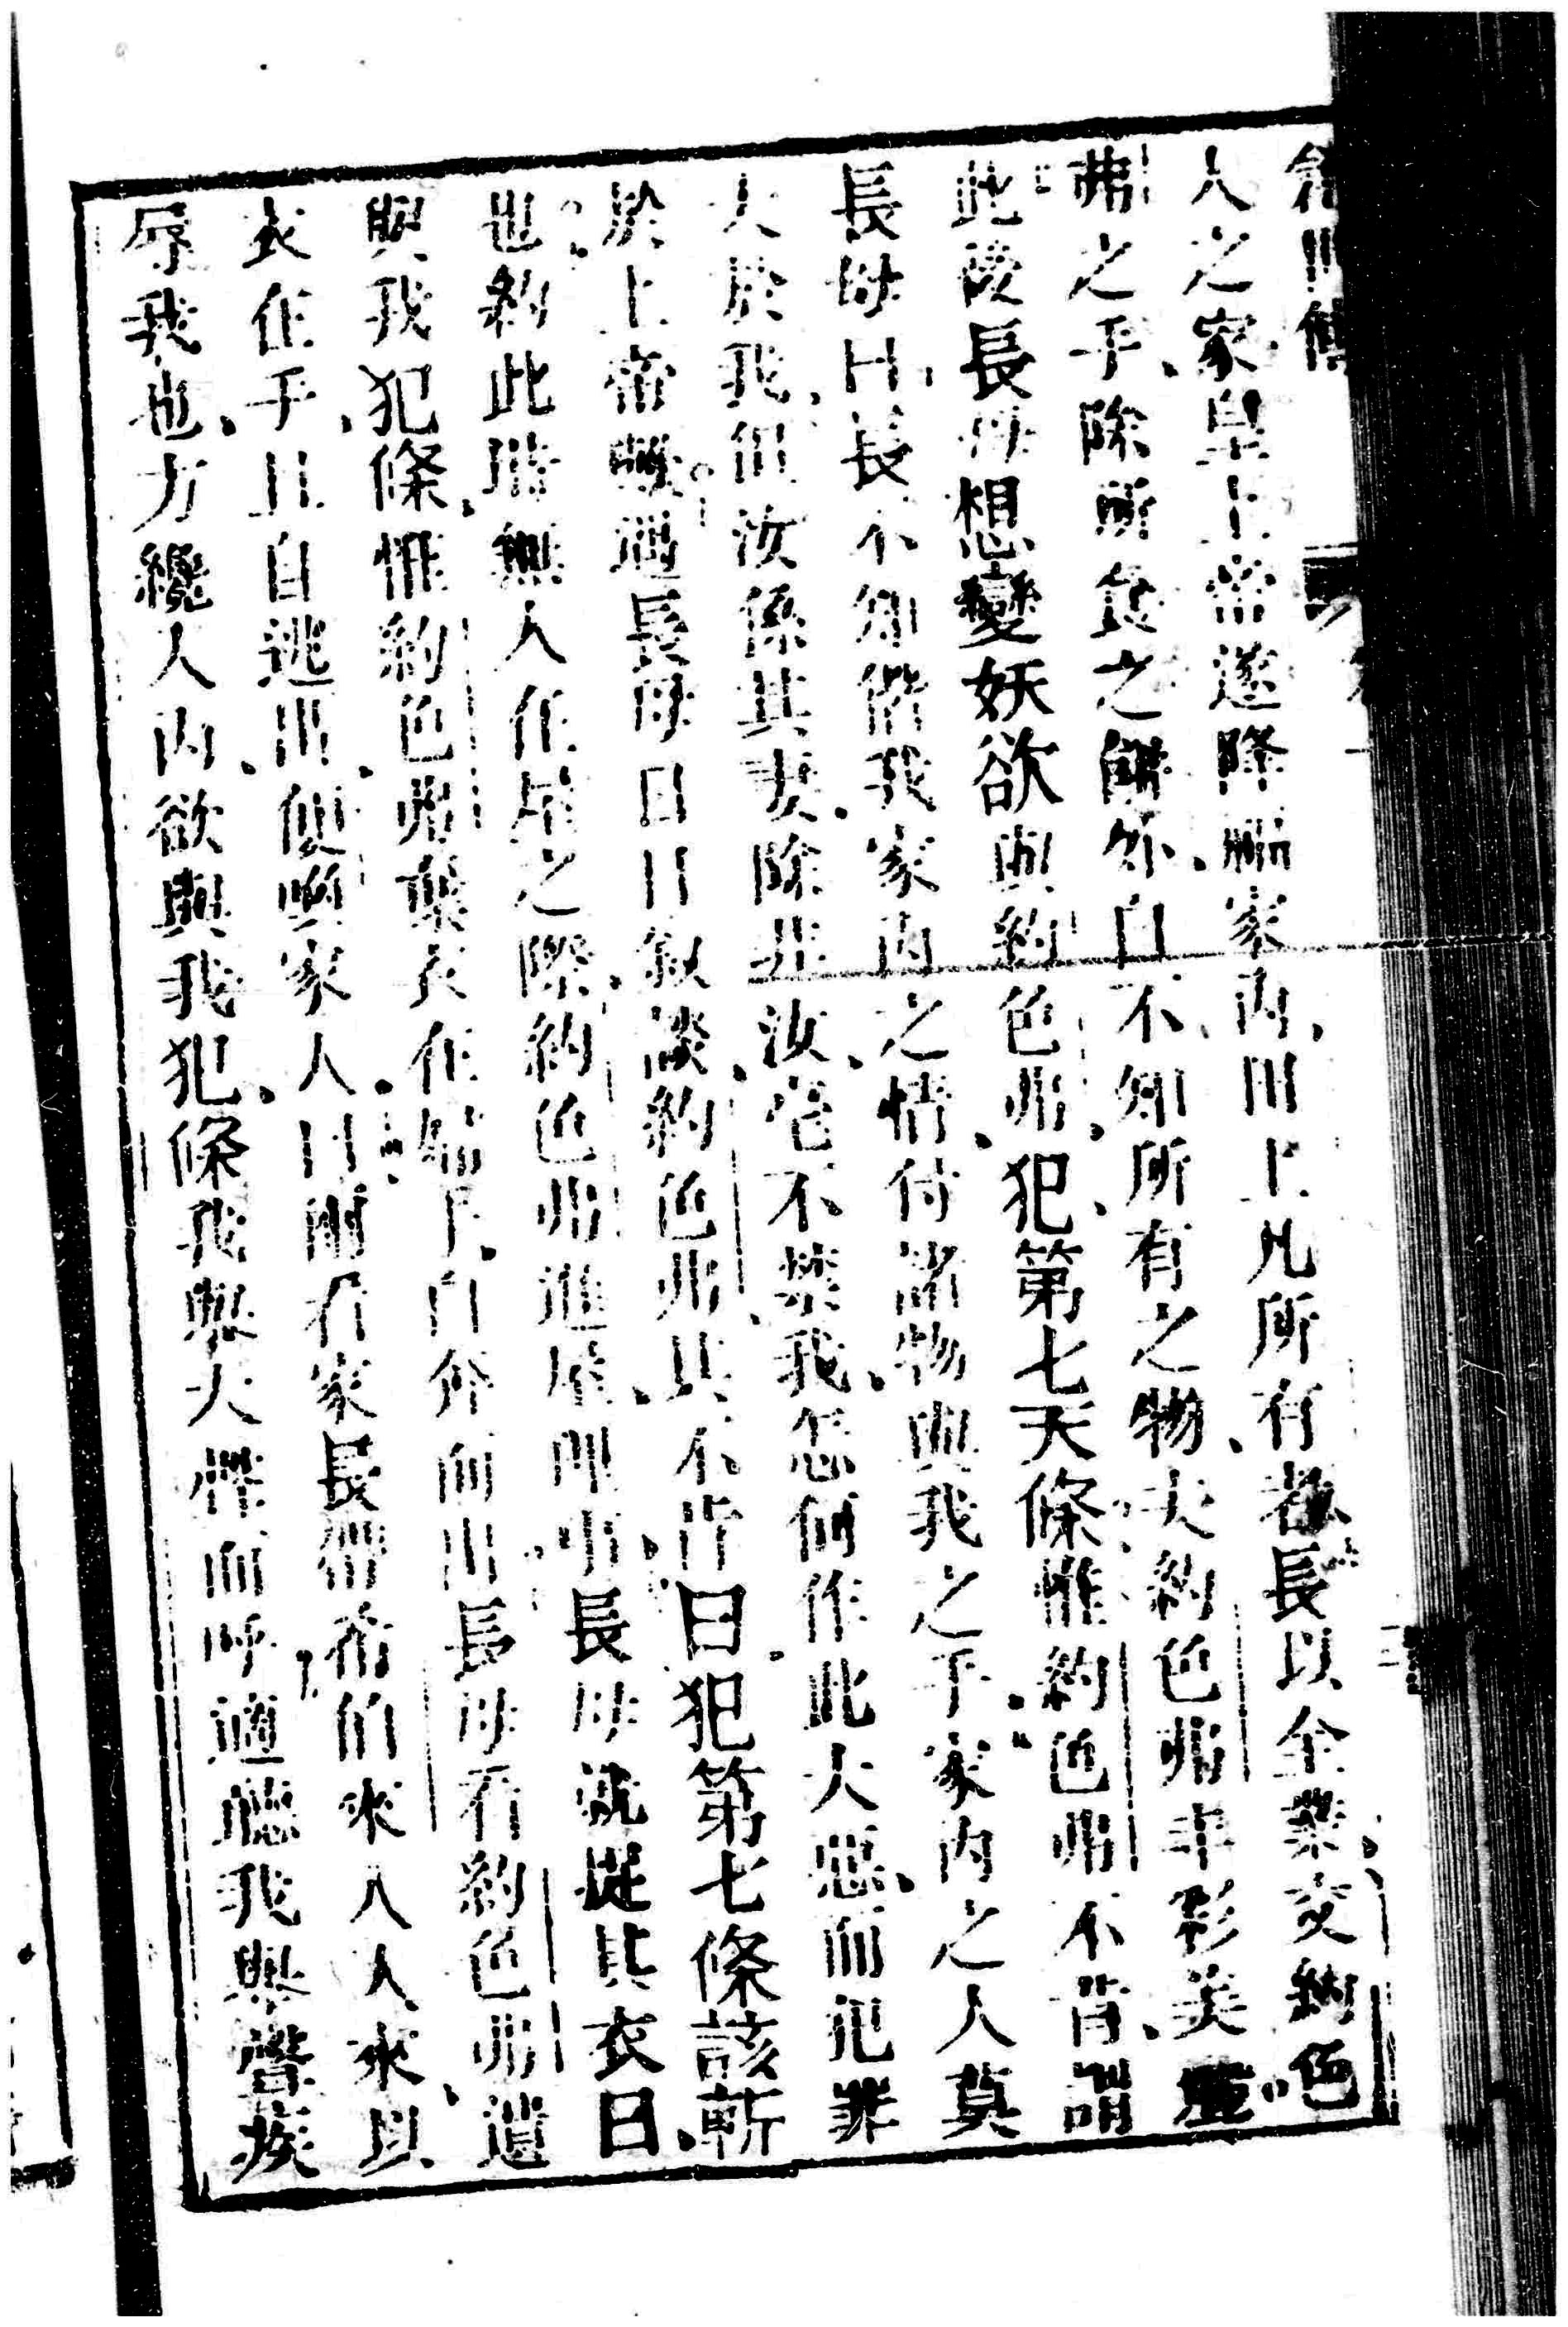 人之家皇上帝遂降福家內田上凡所有者長以全業交約色
弗之手除所食之餅外自不知所有之物夫約色弗丰彩美麗
此後長母想變妖欲與約色弗犯第七天條惟約色弗不肯謂
長母曰長不知偕我家內之情付諸物與我之手家內之人莫
大於我但汝係其妻除非汝它不禁我怎何作此大惡而犯罪
於上帝哉適長母日日敘談約色弗其不肯曰犯第七條該斬
也約此時無人在屋之際約色弗進屋理事長母就捉其衣曰
與我犯條惟約色弗棄衣在婦手自奔而出長母看約色弗遺
衣在手且自逃出便喚家人曰爾看家長帶希伯來人入來以
辱我也方纔入內欲與我犯條我舉大聲而呼適聽我舉聲疾